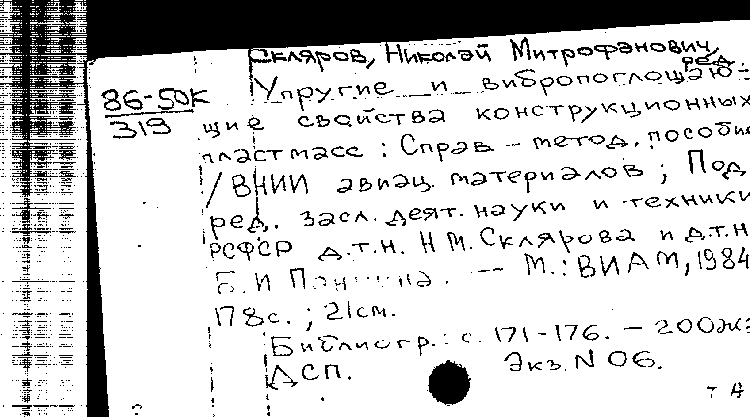 Скляров, Николай Митрофанович,
ред.
86-50К
319
Упругие и вибропоглощаю-
щие свойства конструкционных
пластмасс : Справ-метод. пособие
/ ВНИИ авиац. материалов ; Под
ред. засл. деят. науки и техники
РСФСР д.т.н. Н М. Склярова и д.т.н
Б. И — М.: ВИАМ, 1984
178с. ; 21см.
Библиогр.: с. 171-176. – 200экз
ДСП. Экз. N 06.